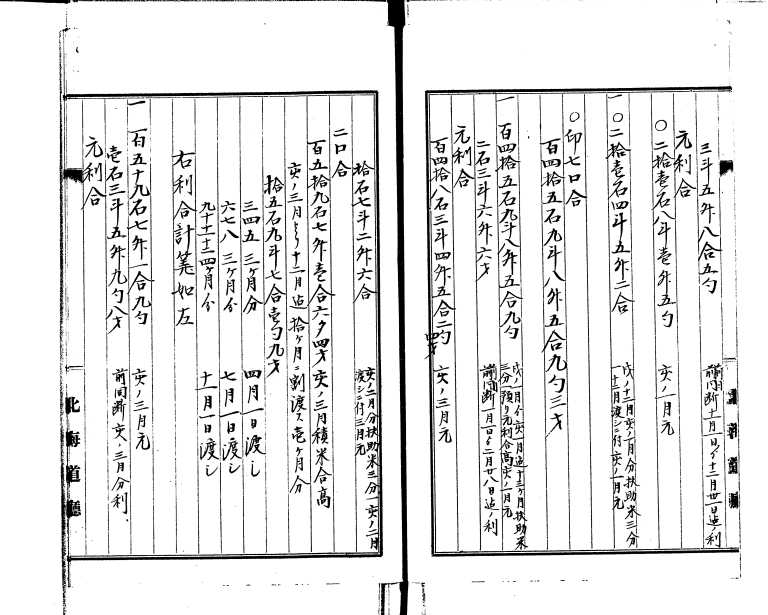 三斗五升八合五勺 前同断十月一日ゟ十二月卅一日迄ノ利
元利合
〇二拾壱石八斗壱升五勺 亥ノ一月元
一
〇二拾壱石四斗五升二合 戌ノ十二月亥ノ一月分扶助米三分一十二月渡シニ付亥ノ一月元
〇印七口合
百四拾五石九斗八升五合九勺三才
一百四拾五石九斗八升五合九勺 戌ノ一月ゟ亥一月迄十三ヶ月扶助米三分一預り元利合高亥ノ一月元
二石三斗六升六才 前同断一月一日ゟ二月廿八日迄ノ利
元利合
百四拾八石三斗四升五合二勺四才 亥ノ三月元
拾石七斗二升六合 亥ノ二月分扶助米三分一亥ノ二月渡シニ付三月元
二口合
百五拾九石七升壱合六夕四才亥ノ三月積米合高
亥ノ三月ゟ十二月迄拾ヶ月ニ割渡ス壱ヶ月分
拾五石九斗七合壱勺九才
三四五三ヶ月分 四月一日渡シ
六七八三ヶ月分 七月一日渡シ
九十十一十二四ヶ月分 十一月一日渡シ
右利合計筭如左
一百五十九石七升一合九勺 亥ノ三月元
壱石三斗五升九勺八才 前同断亥ノ三月分利
元利合
北海道廳